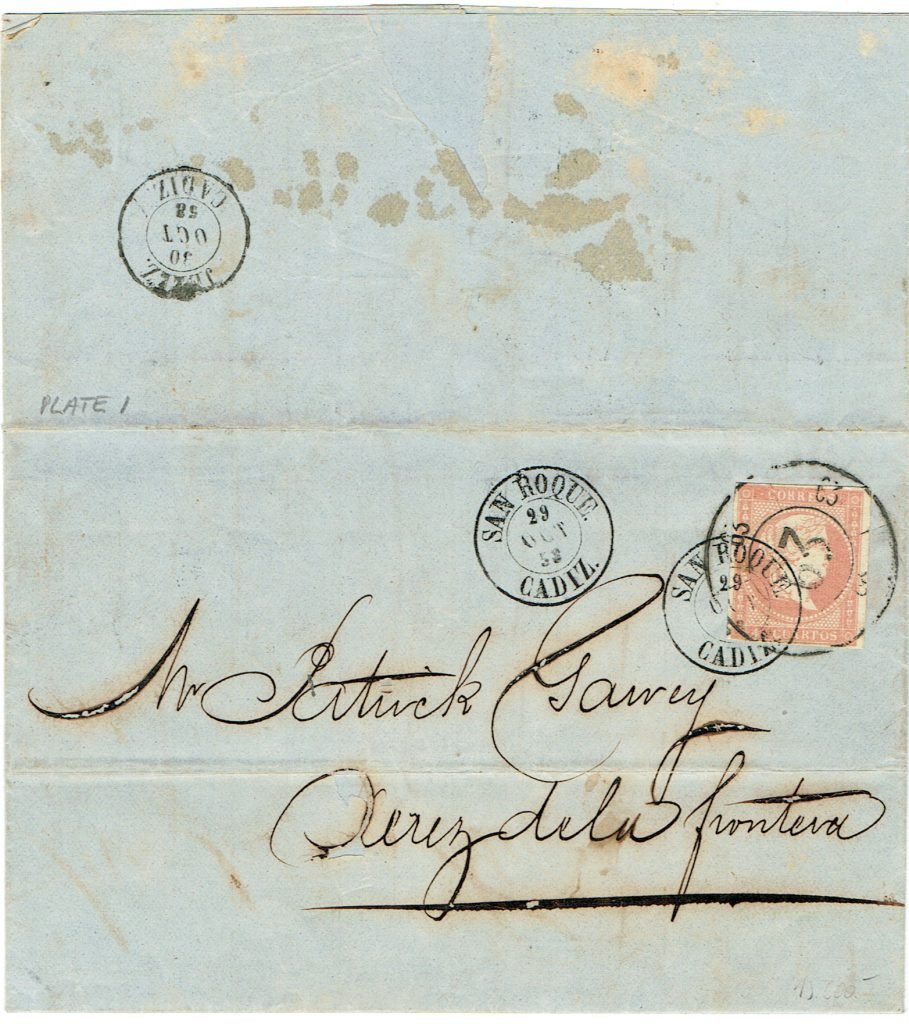 JEREZ.
30
OCT
58
CADIZ.
PLATE 1
SAN ROQUE.
29
OCT
58
CADIZ.
CORREOS
CUARTOS
SAN ROQUE.
29
OCT
58
CADIZ.
63
Mr Patrick Garvey
Xerez de la frontera